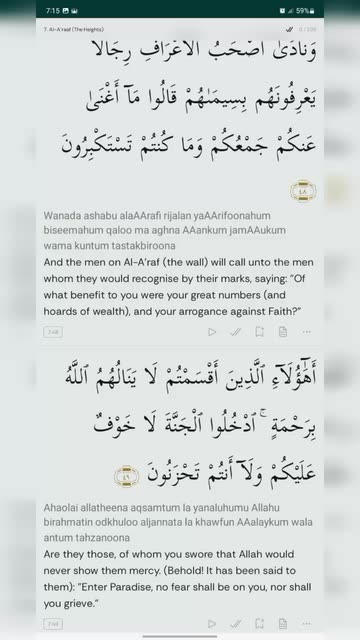 7:15
59%
7. Al-A'raaf (The Heights)
0 / 206
وَنَادَىٰٓ أَصْحَٰبُ ٱلْأَعْرَافِ رِجَالًا
يَعْرِفُونَهُم بِسِيمَىٰهُمْ قَالُوا۟ مَآ أَغْنَىٰ
عَنكُمْ جَمْعُكُمْ وَمَا كُنتُمْ تَسْتَكْبِرُونَ
٤٨
Wanada ashabu alaAArafi rijalan yaAArifoonahum
biseemahum qaloo ma aghna AAankum jamAAukum
wama kuntum tastakbiroona
And the men on Al-A'raf (the wall) will call unto the men
whom they would recognise by their marks, saying: "Of
what benefit to you were your great numbers (and
hoards of wealth), and your arrogance against Faith?"
7:48
أَهَٰٓؤُلَآءِ ٱلَّذِينَ أَقْسَمْتُمْ لَا يَنَالُهُمُ ٱللَّهُ
بِرَحْمَةٍ ۚ ٱدْخُلُوا۟ ٱلْجَنَّةَ لَا خَوْفٌ
عَلَيْكُمْ وَلَآ أَنتُمْ تَحْزَنُونَ ٤٩
Ahaolai allatheena aqsamtum la yanaluhumu Allahu
birahmatin odkhuloo aljannata la khawfun AAalaykum wala
antum tahzanoona
Are they those, of whom you swore that Allah would
never show them mercy. (Behold! It has been said to
them): "Enter Paradise, no fear shall be on you, nor shall
you grieve."
7:49